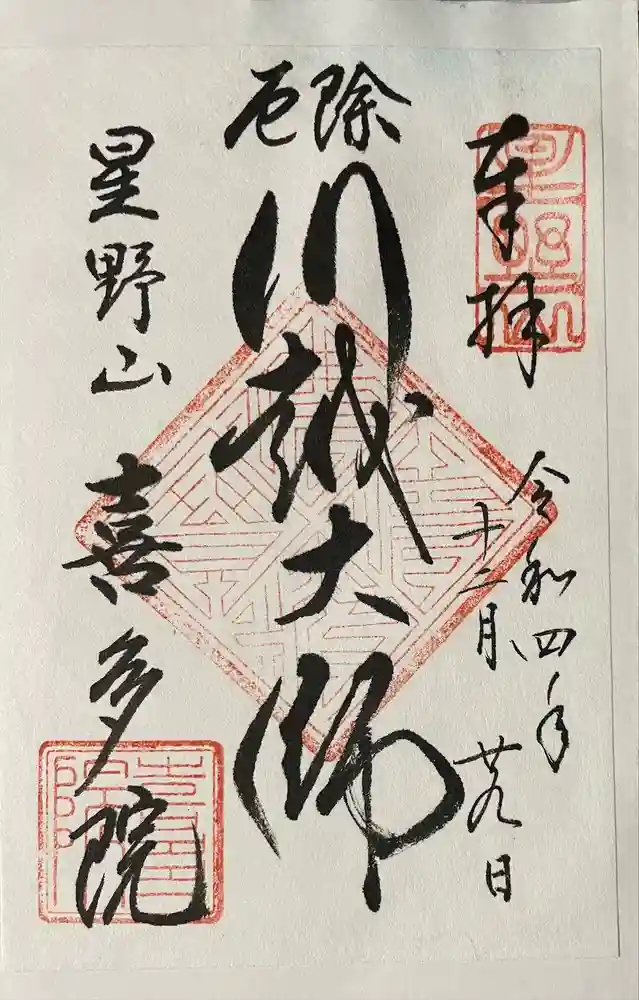 奉拝
令和四年
十二月
廿九日
厄除
川越大師
星野山
喜多院